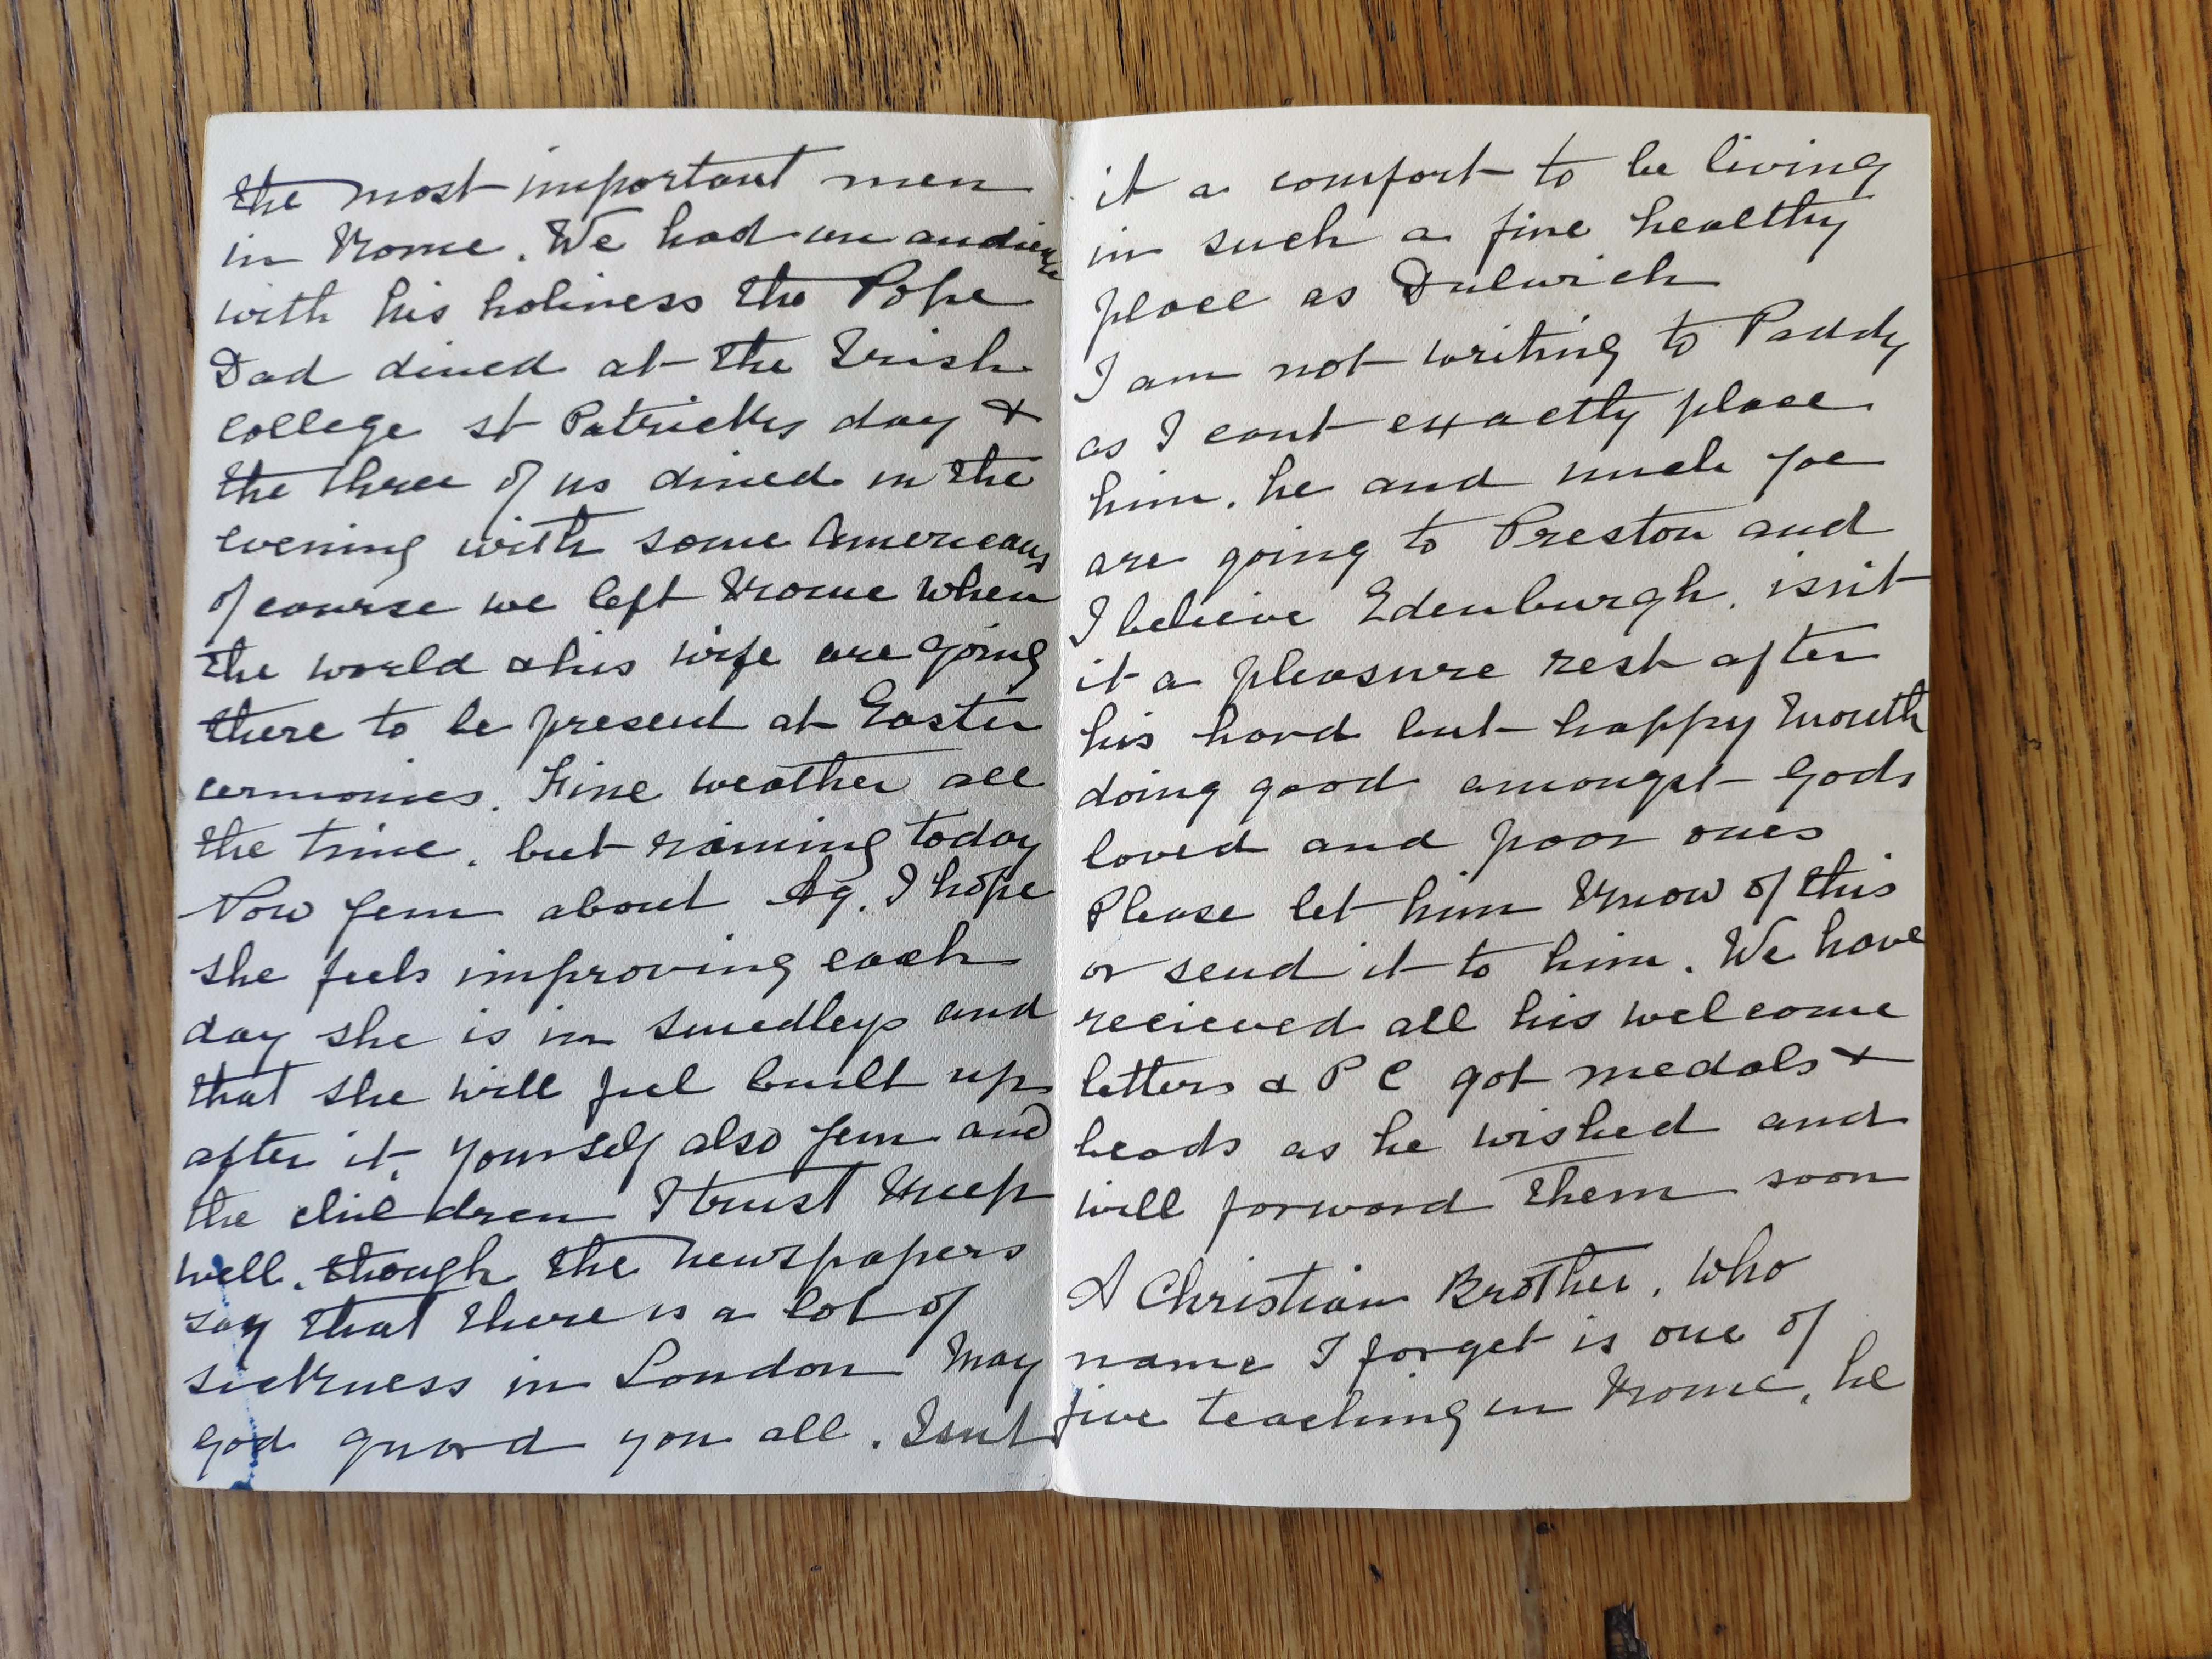 the most important men
in Rome. We had an audience
with his holiness the Pope
Dad dined at the Irish
college st Patricks day &
the three of us dined in the
evening with some Americans
of course we left Rome when
the world & his wife are going
there to be present at Easter
cermonies. Fine weather all
the time. but raining today
Now Jem about Ag. I hope
she feels improving each
day she is in Smedleys and
that she will feel built up
after it. yourself also Jem and
the children I trust keep
well. though the newspapers
say that there is a lot of
sickness in London May
god guard you all. Isnt
it a comfort to be living
in such a fine healthy
place as Dulwich
I am not writing to Paddy
as I cant exactly place
him. he and uncle Joe
are going to Preston and
I believe Edenburgh. isnt
it a pleasure rest after
his hard but happy month
doing good amongst Gods
loved and poor ones
Please let him know of this
or send it to him. We have
recieved all his welcome
letters & P C got medals &
beads as he wished and
will forward them soon
A Christian Brother, who
name I forget is one of
five teaching in Rome, he